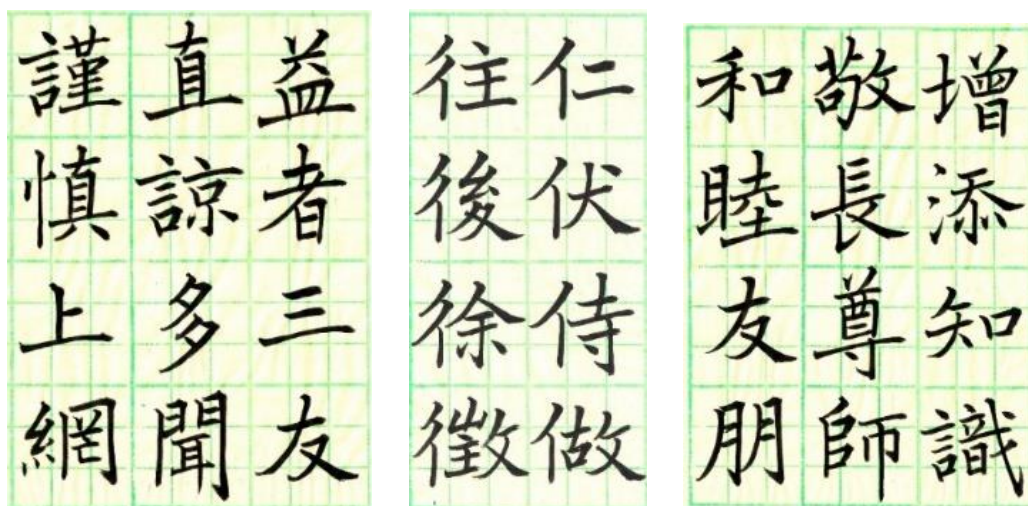 益者三友
直諒多聞
謹慎上網
仁伏侍做
往後徐徵
增添知識
敬長尊師
和睦友朋